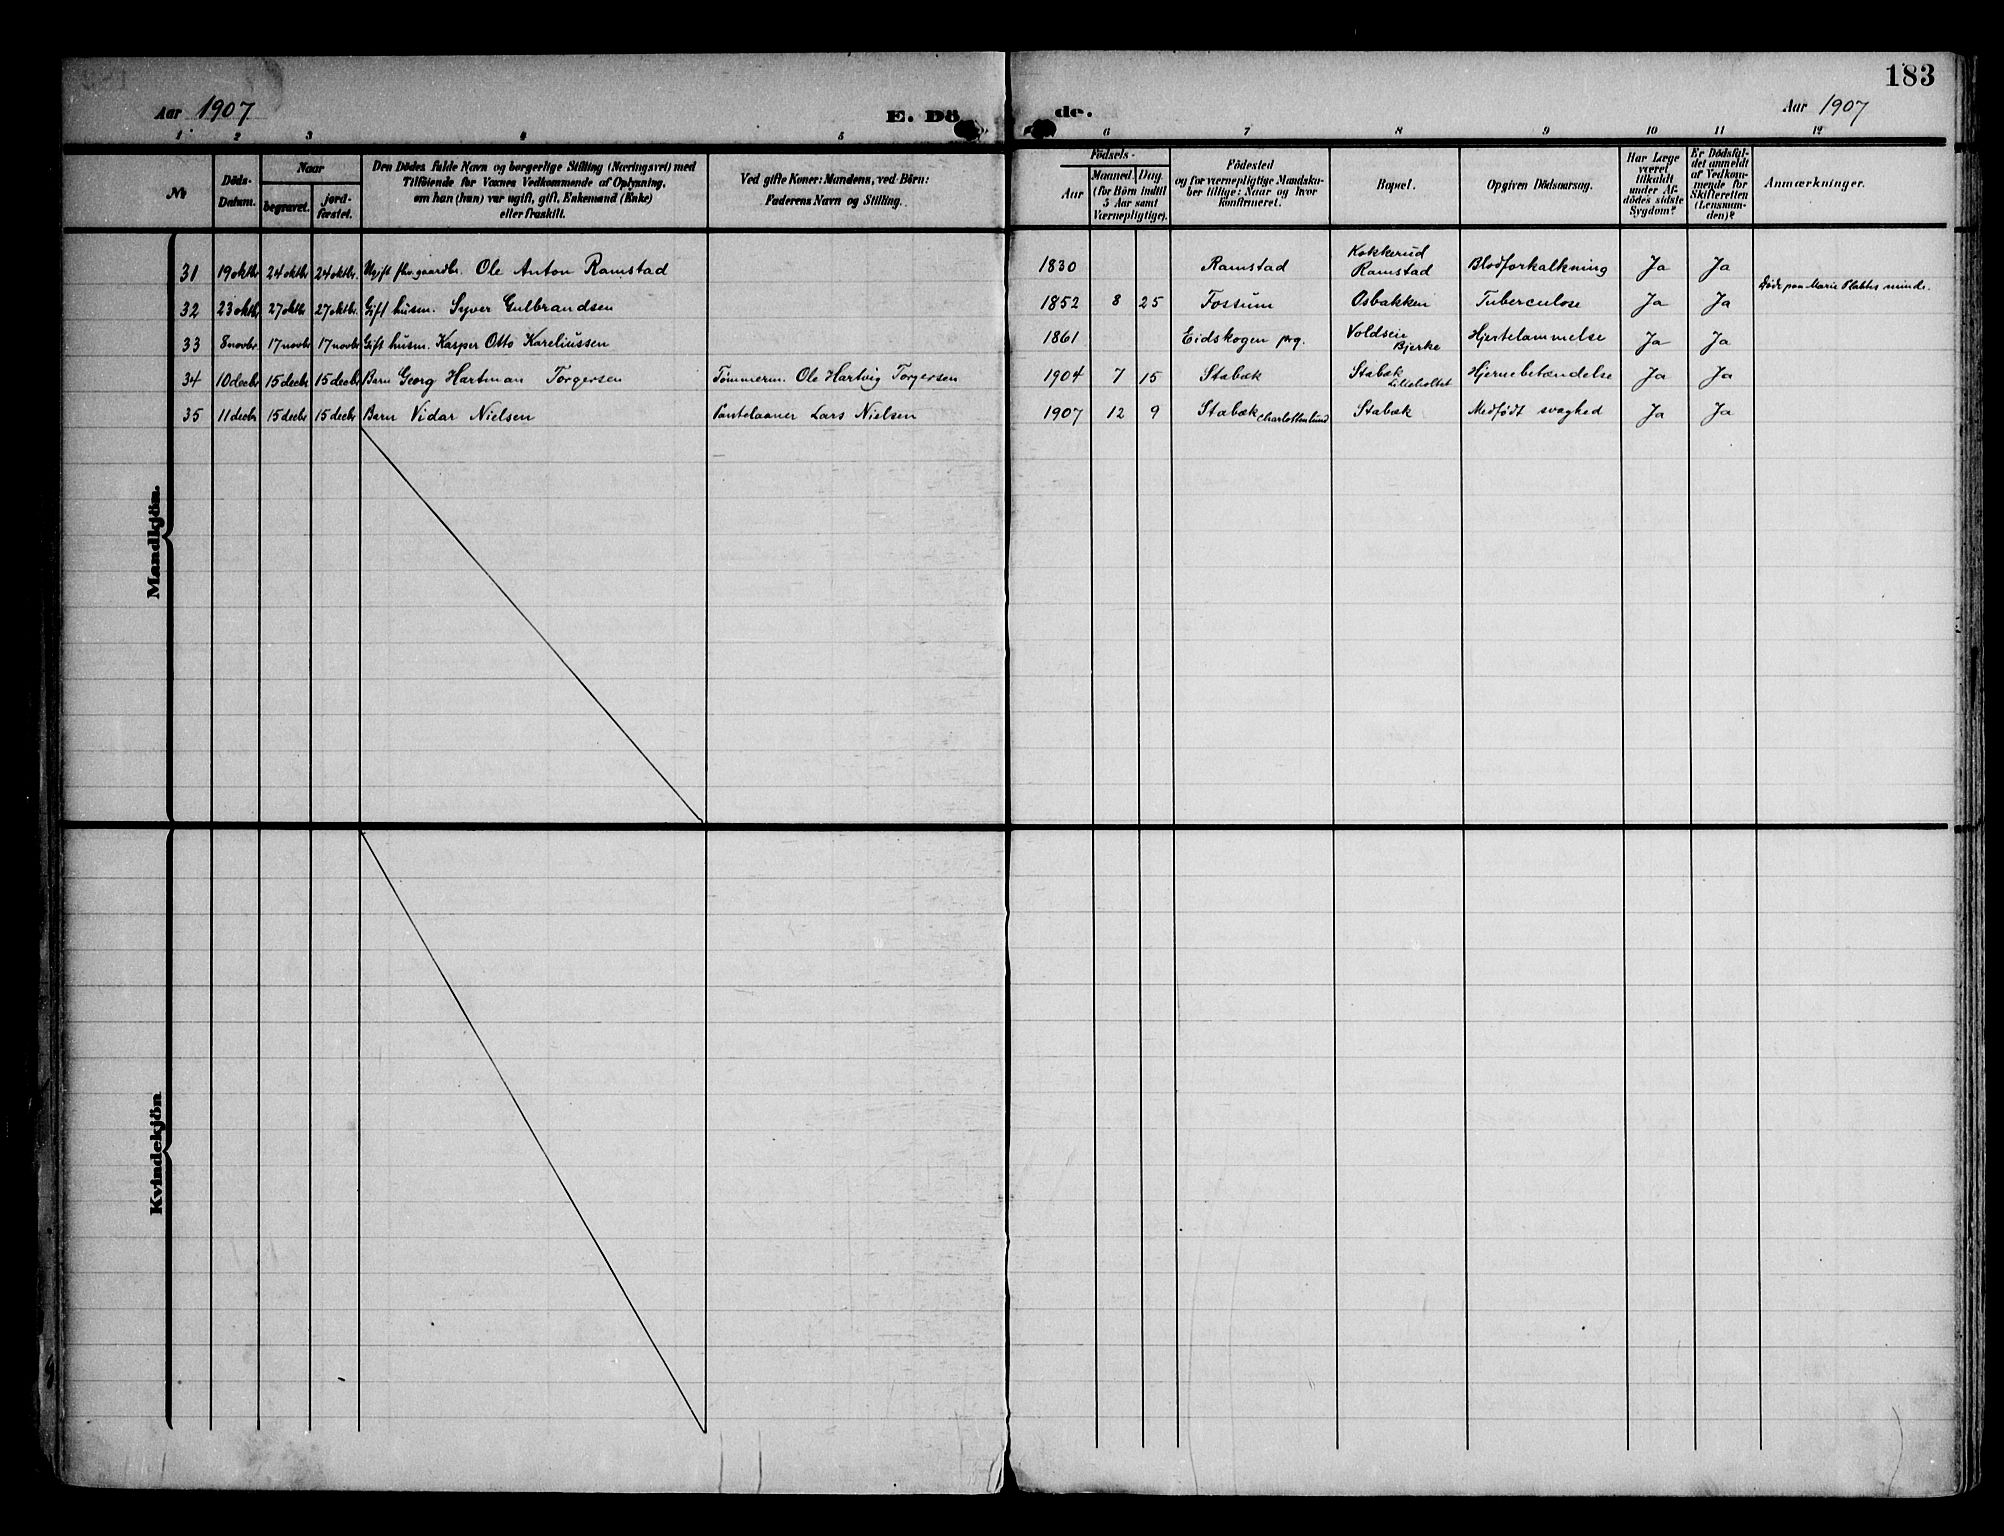 183
Aar 1907
E. Dö
de.
Aar 1907
1 2 3 4 5 6 7 8 9 10 11 12
No
Döds-
Datum.
Naar
begravet.
jord-
fæstet.
Den Dödes fulde Navn og borgerlige Stilling (Næringsvei) med
Tilföiende for Voxnes Vedkommende af Oplysning,
om han (hun) var ugift, gift, Enkemand (Enke)
eller fraskilt.
Ved gifte Koner: Mandens, ved Börn:
Faderens Navn og Stilling.
Födsels-
Aar
Maaned. Dag.
(for Börn indtil
5 Aar samt
Værnepligtige).
Födested
og for værnepligtige Mandska-
ber tillige: Naar og hvor
konfirmeret.
Bopæl.
Opgiven Dödsaarsag.
Har Læge
været
tilkaldt
under Af-
dödes sidste
Sygdom?
Er Dödsfal-
det anmeldt
af Vedkom-
mende for
Skifteretten
(Lensman-
den)?
Anmærkninger.
Mandkjön.
31 19 oktbr 24 oktbr 24 oktbr. Ugift fhv. gaardbr. Ole Anton Ramstad 1830 Ramstad Kokkerud Ramstad Blodforkalkning Ja Ja
32 23 oktbr 27 oktbr 27 oktbr. Gift husm. Syver Gulbrandsen 1852 8 25 Fossum Osbakken Tuberculose Ja Ja Døde paa Marie Plahtes minde.
33 8 novbr. 17 novbr 17 novbr Gift husm. Kasper Otto Kareliussen 1861 Eidskogen prg. Voldseie Bjerke Hjertelammelse Ja Ja
34 10 decbr 15 decbr 15 decbr Barn Georg Hartman Torgersen Tømmerm. Ole Hartvig Torgersen 1904 7 15 Stabæk Stabæk Lilleholtet Hjernebetændelse Ja Ja
35 11 decbr 15 decbr 15 decbr Barn Vidar Nielsen Pantelaaner Lars Nielsen 1907 12 9 Stabæk Charlottenlund Stabæk Medfødt svaghed Ja Ja
Kvindekjön